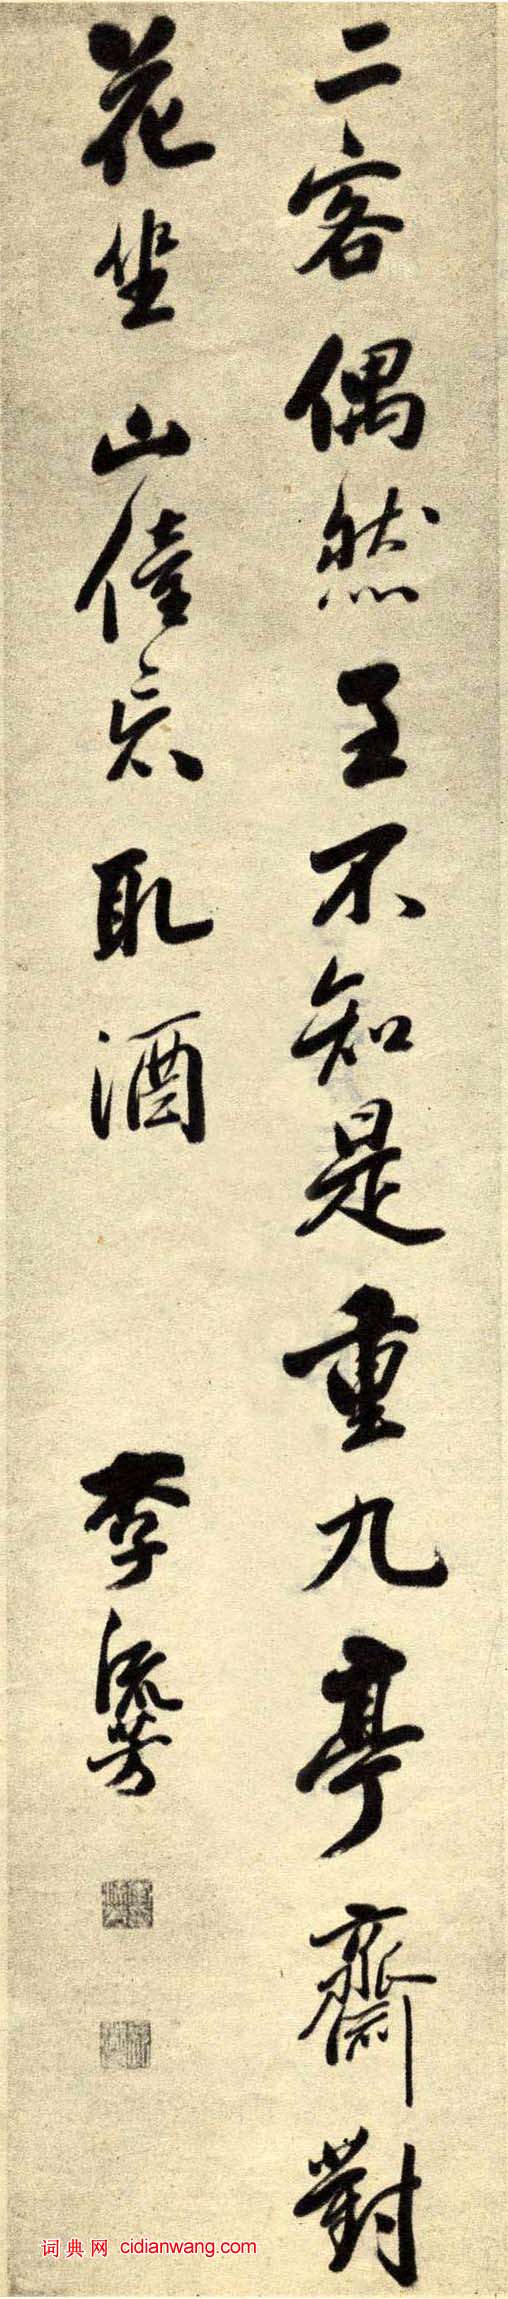 二客偶然至不知是重九亭齋對
花坐山僮忘取酒
李流芳
词典网 cidianwang.com